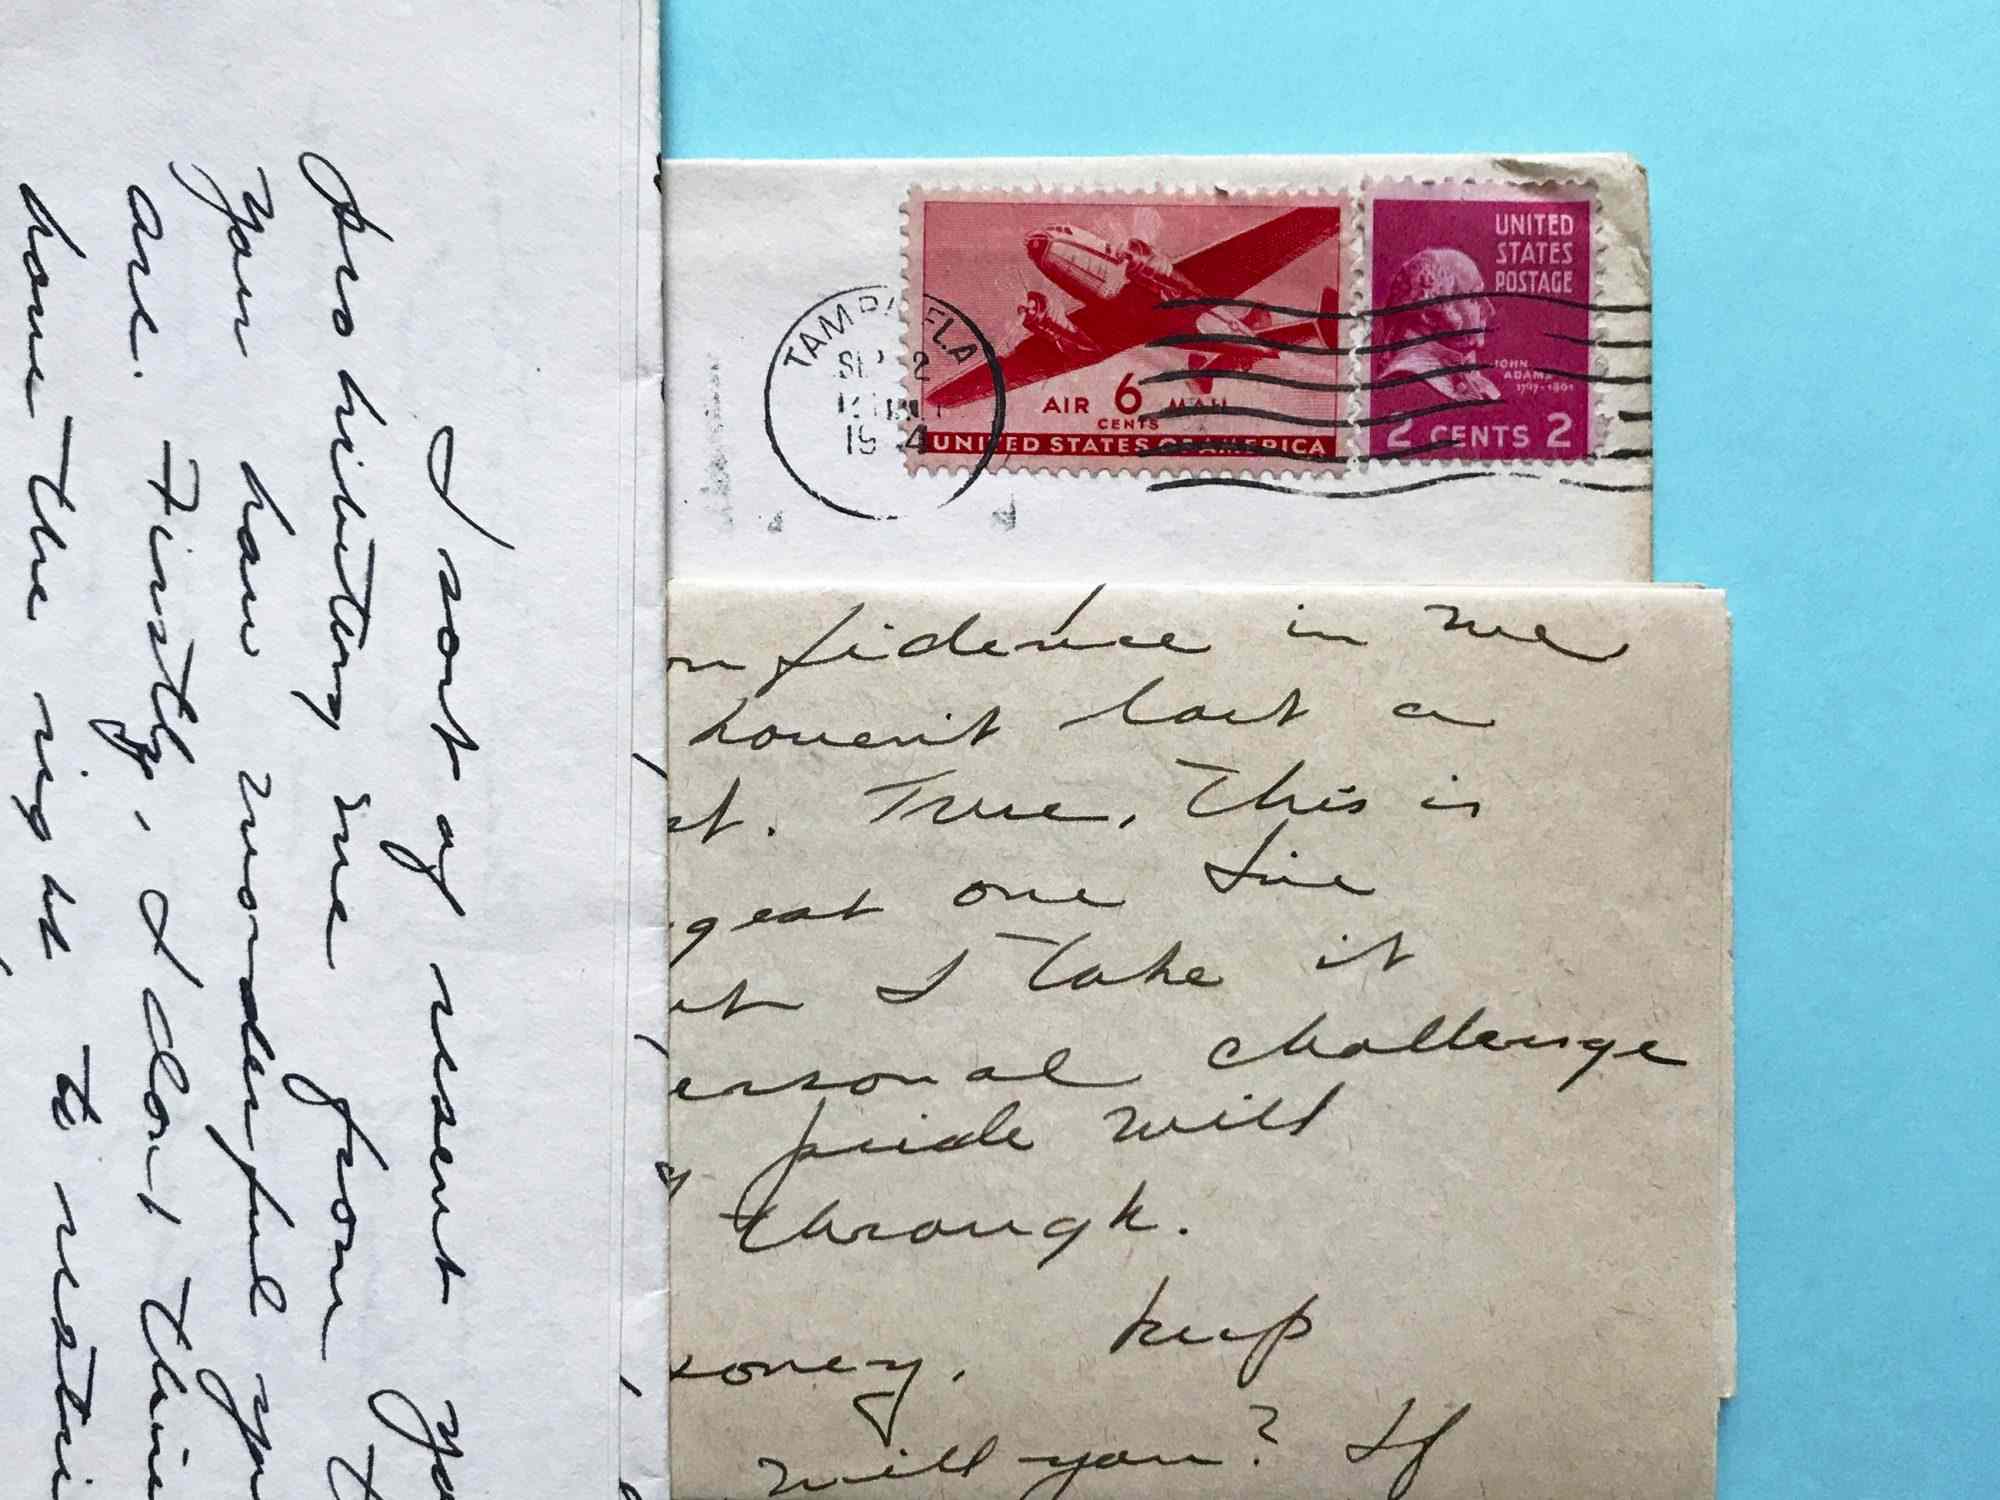 I sort of resent yo
prohibiting me from t
Your how wonderful you
are. Firstly, I don't thin
have the right to restri
TAMPA FLA
SEP 2
19 4
AIR 6 MAIL
CENTS
UNITED STATES OF AMERICA
UNITED
STATES
POSTAGE
JOHN
ADAMS
1797-1801
2 CENTS 2
onfidence in me
haven't lost a
st. True, this is
ggest one I've
ut I take it
ersonal challenge
y pride will
through.
oney. Keep
will you? If